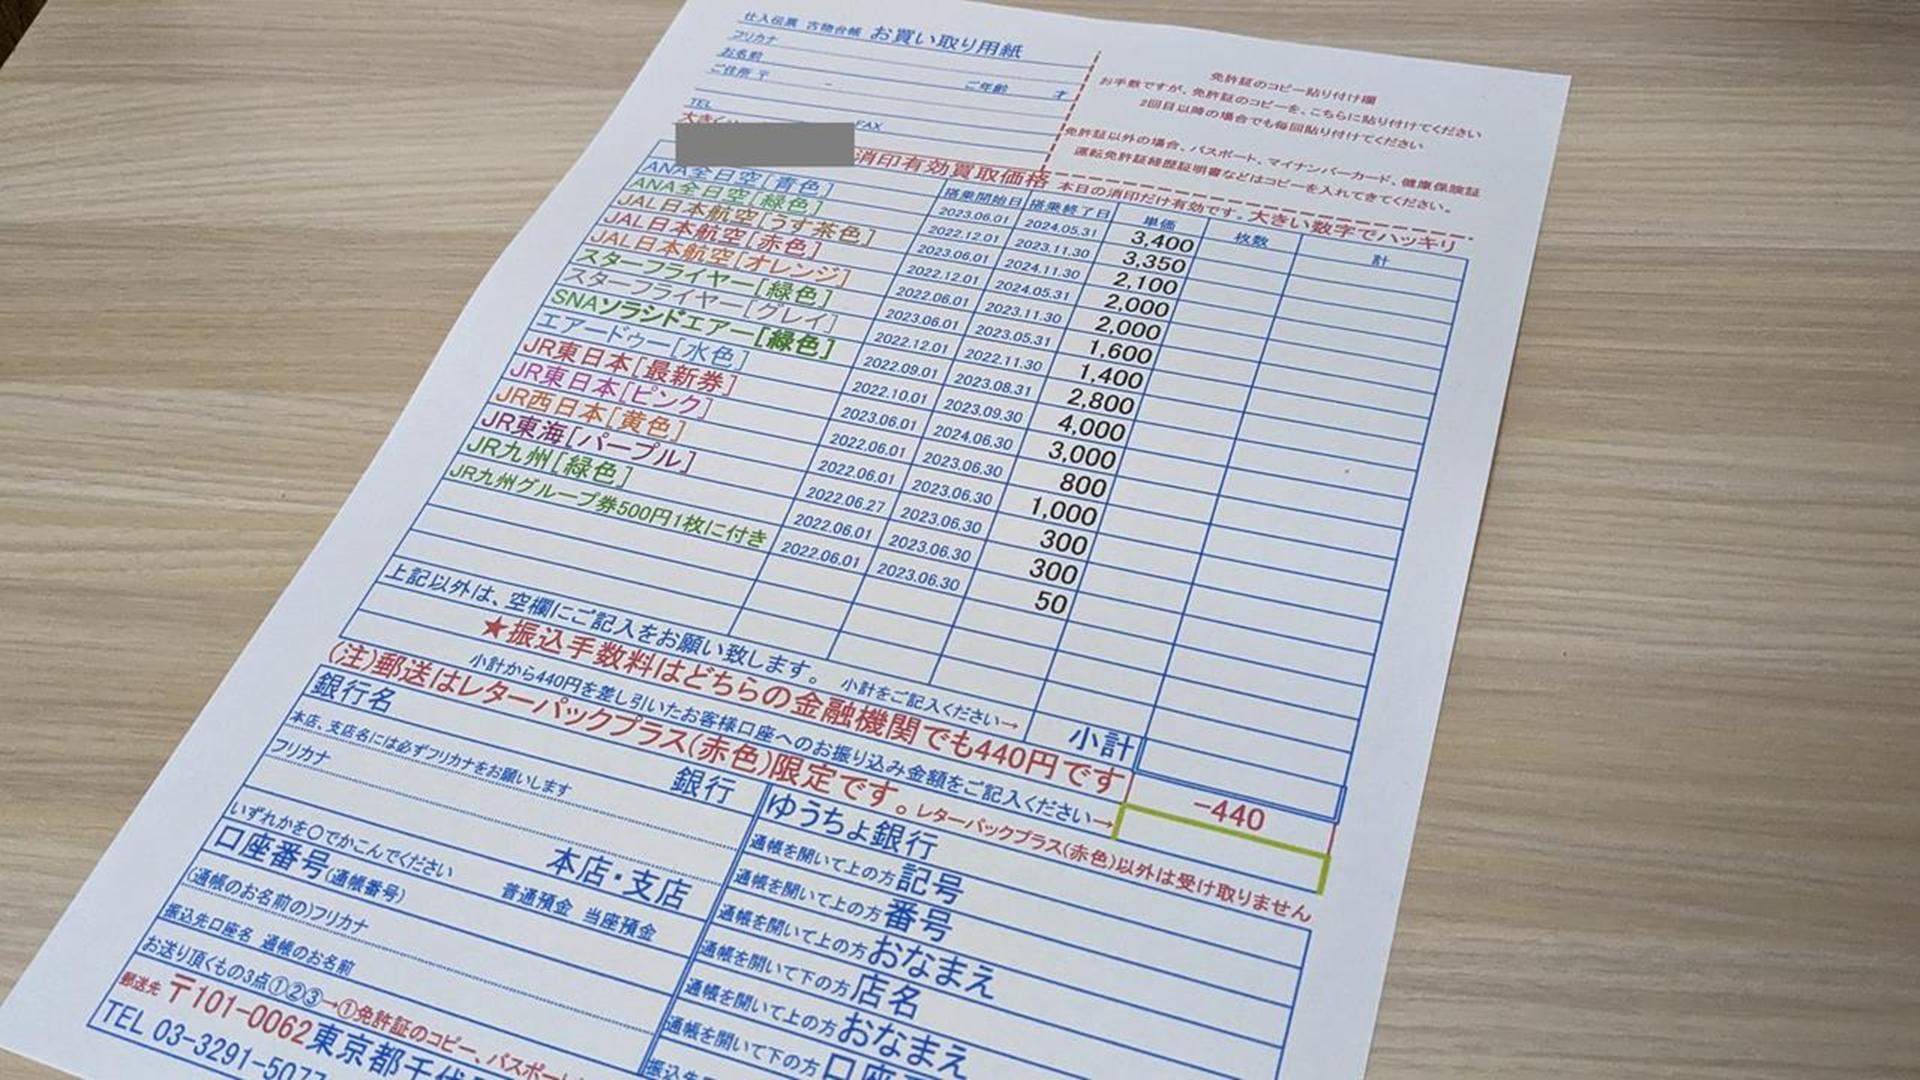 仕入伝票 古物台帳 お買い取り用紙
フリカナ
お名前
ご住所 〒 - ご年齢 才
TEL FAX
免許証のコピー貼り付け欄
お手数ですが、免許証のコピーを、こちらに貼り付けてください
2回目以降の場合でも毎回貼り付けてください
免許証以外の場合、パスポート、マイナンバーカード、健康保険証
運転免許証経歴証明書などはコピーを入れてきてください。
消印有効買取価格 本日の消印だけ有効です。大きい数字でハッキリ
搭乗開始日 搭乗終了日 単価 枚数 計
ANA全日空[青色] 2023.06.01 2024.05.31 3,400
ANA全日空[緑色] 2022.12.01 2023.11.30 3,350
JAL日本航空[うす茶色] 2023.06.01 2024.11.30 2,100
JAL日本航空[赤色] 2022.12.01 2024.05.31 2,000
JAL日本航空[オレンジ] 2022.06.01 2023.11.30 2,000
スターフライヤー[緑色] 2023.06.01 2023.05.31 1,600
スターフライヤー[グレイ] 2022.12.01 2022.11.30 1,400
SNAソラシドエアー[緑色] 2022.09.01 2023.08.31 2,800
エアードゥー[水色] 2022.10.01 2023.09.30 4,000
JR東日本[最新券] 2023.06.01 2024.06.30 3,000
JR東日本[ピンク] 2022.06.01 2023.06.30 800
JR西日本[黄色] 2022.06.01 2023.06.30 1,000
JR東海[パープル] 2022.06.27 2023.06.30 300
JR九州[緑色] 2022.06.01 2023.06.30 300
JR九州グループ券500円1枚に付き 2022.06.01 2023.06.30 50
上記以外は、空欄にご記入をお願い致します。 小計をご記入ください→ 小計
★振込手数料はどちらの金融機関でも440円です -440
小計から440円を差し引いたお客様口座へのお振り込み金額をご記入ください→
(注)郵送はレターパックプラス(赤色)限定です。レターパックプラス(赤色)以外は受け取りません
銀行名 銀行
本店、支店名には必ずフリカナをお願いします
フリカナ
本店・支店
いずれかを〇でかこんでください 普通預金 当座預金
口座番号(通帳番号)
(通帳のお名前の)フリカナ
振込先口座名 通帳のお名前
ゆうちょ銀行
通帳を開いて上の方 記号
通帳を開いて上の方 番号
通帳を開いて上の方 おなまえ
通帳を開いて下の方 店名
通帳を開いて上の方 おなまえ
通帳を開いて下の方 口座
振込先
お送り頂くもの3点①②③→①免許証のコピー、パスポー
郵送先 〒101-0062東京都千代
TEL 03-3291-5077